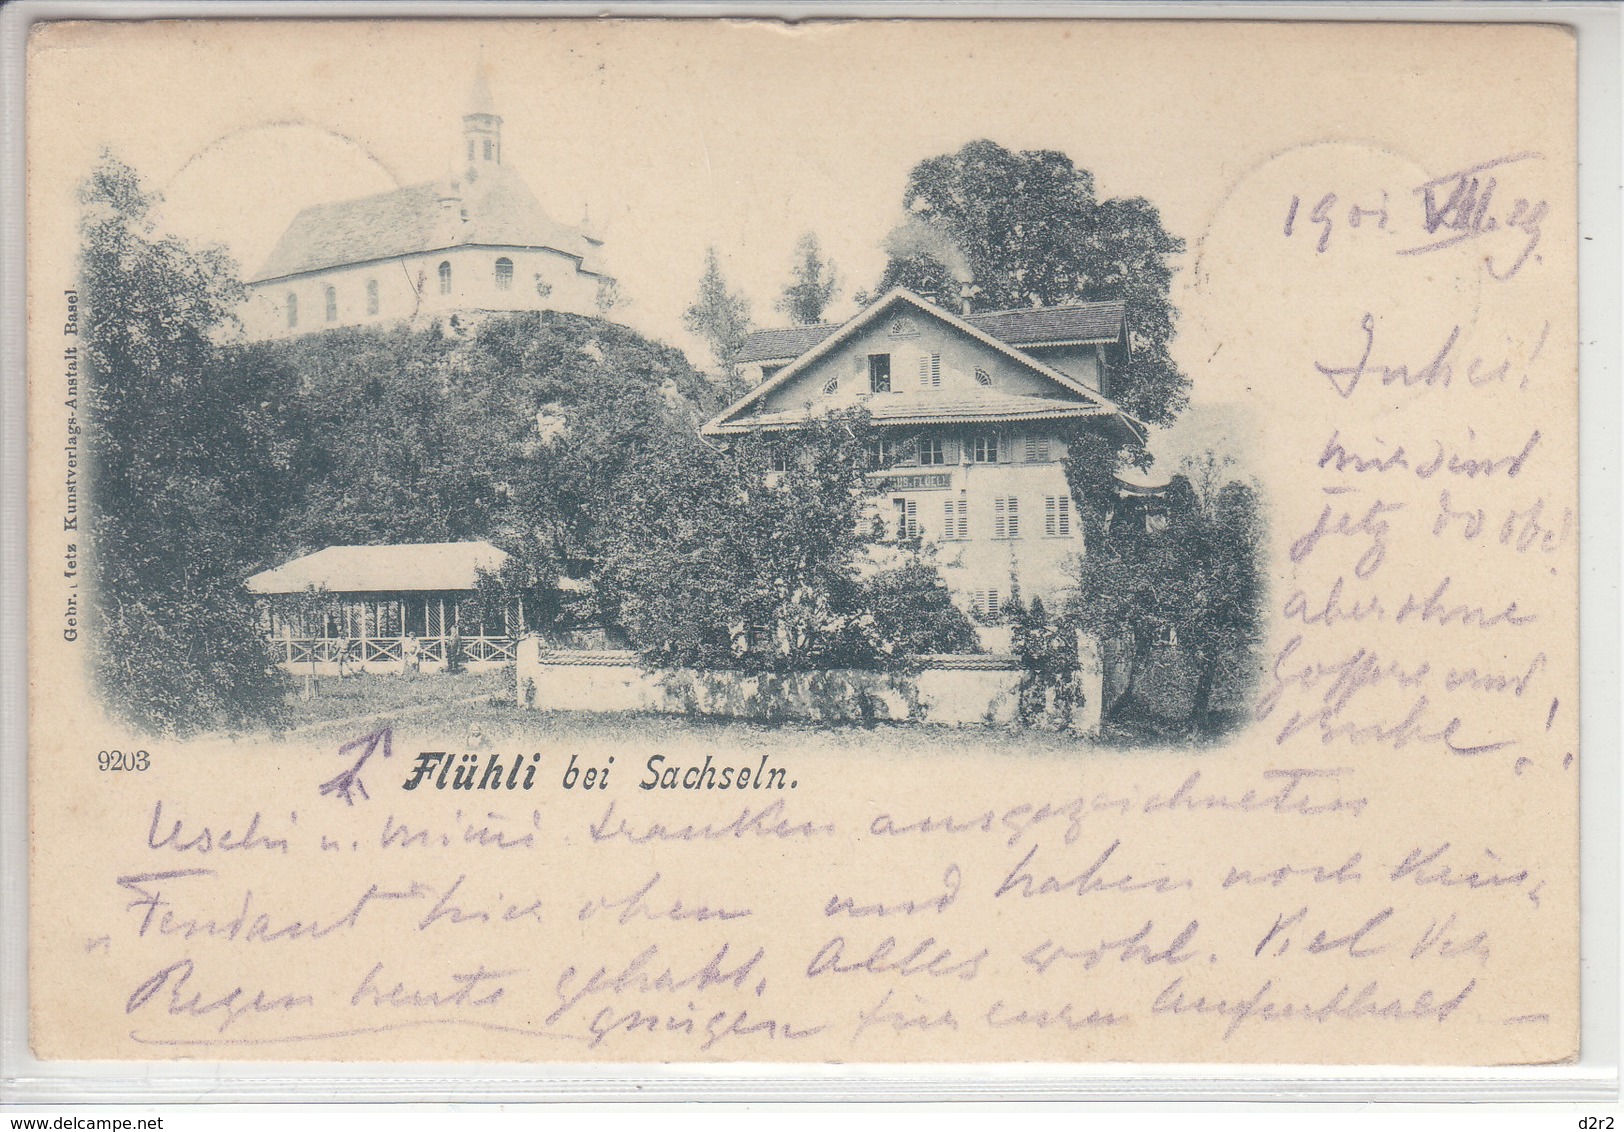 Gebr. Metz Kunstverlags-Anstalt Basel
1901 VIII. 29.
Juhei!
mir sind
jetz do obe
aber ohne
und
!
9203
Flühli bei Sachseln.
u. Mimi tranken ausgezeichneten
Fendant hier oben und haben noch kein
Regen heute gehabt. Alles wohl. Viel Ver
gnügen für euren Aufenthalt —
delcampe.net
d2r2